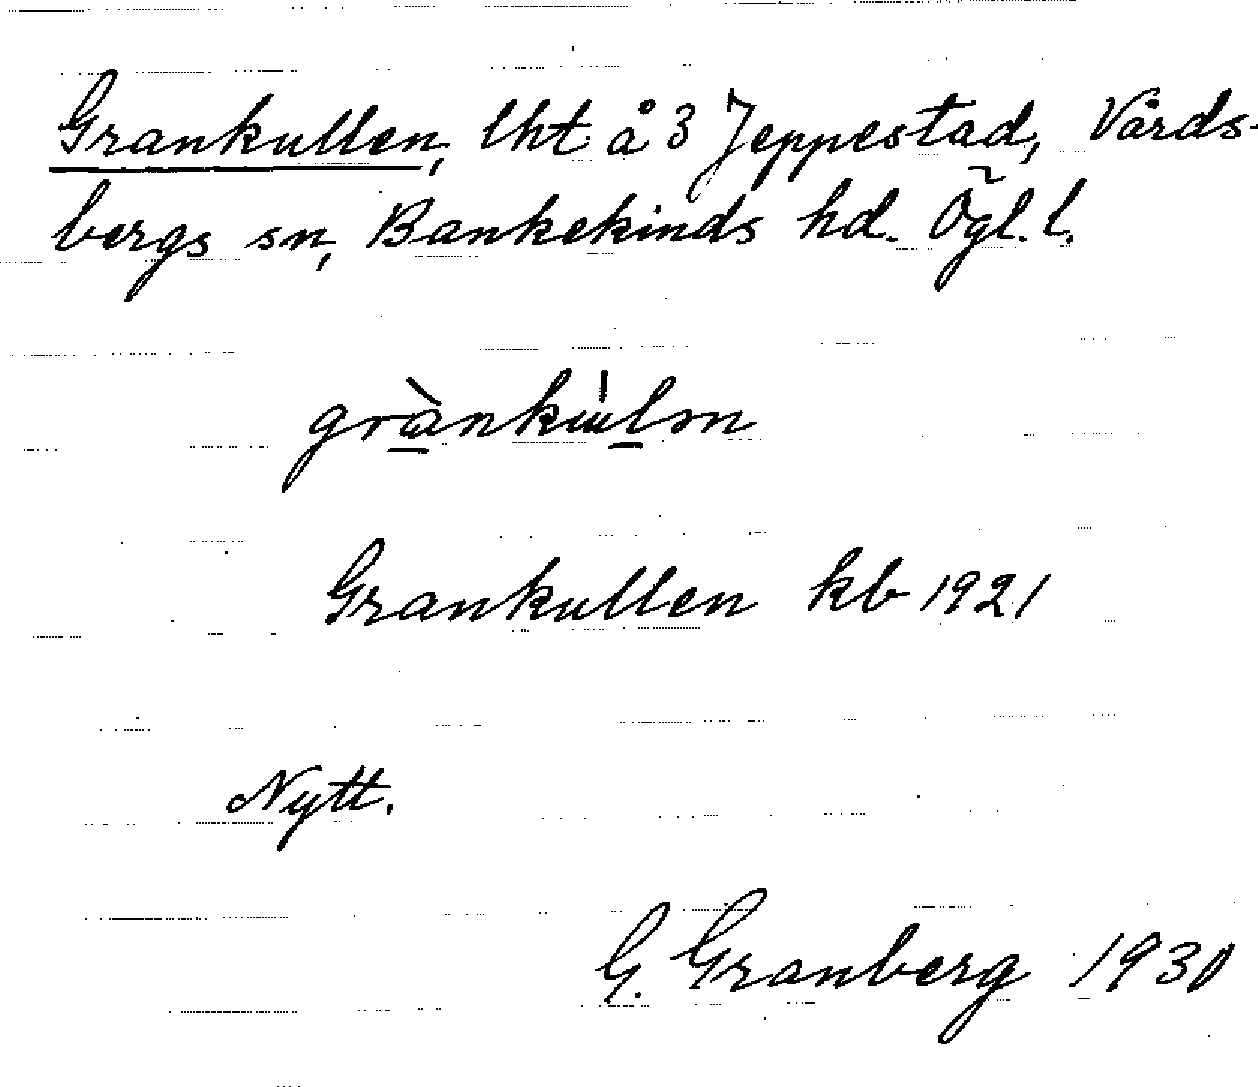 Grankullen, lht å 3 Jeppestad, Vårds-
bergs sn, Bankekinds hd. Ögl. l.
grànku̍lən
Grankullen kb 1921
Nytt.
G. Granberg 1930